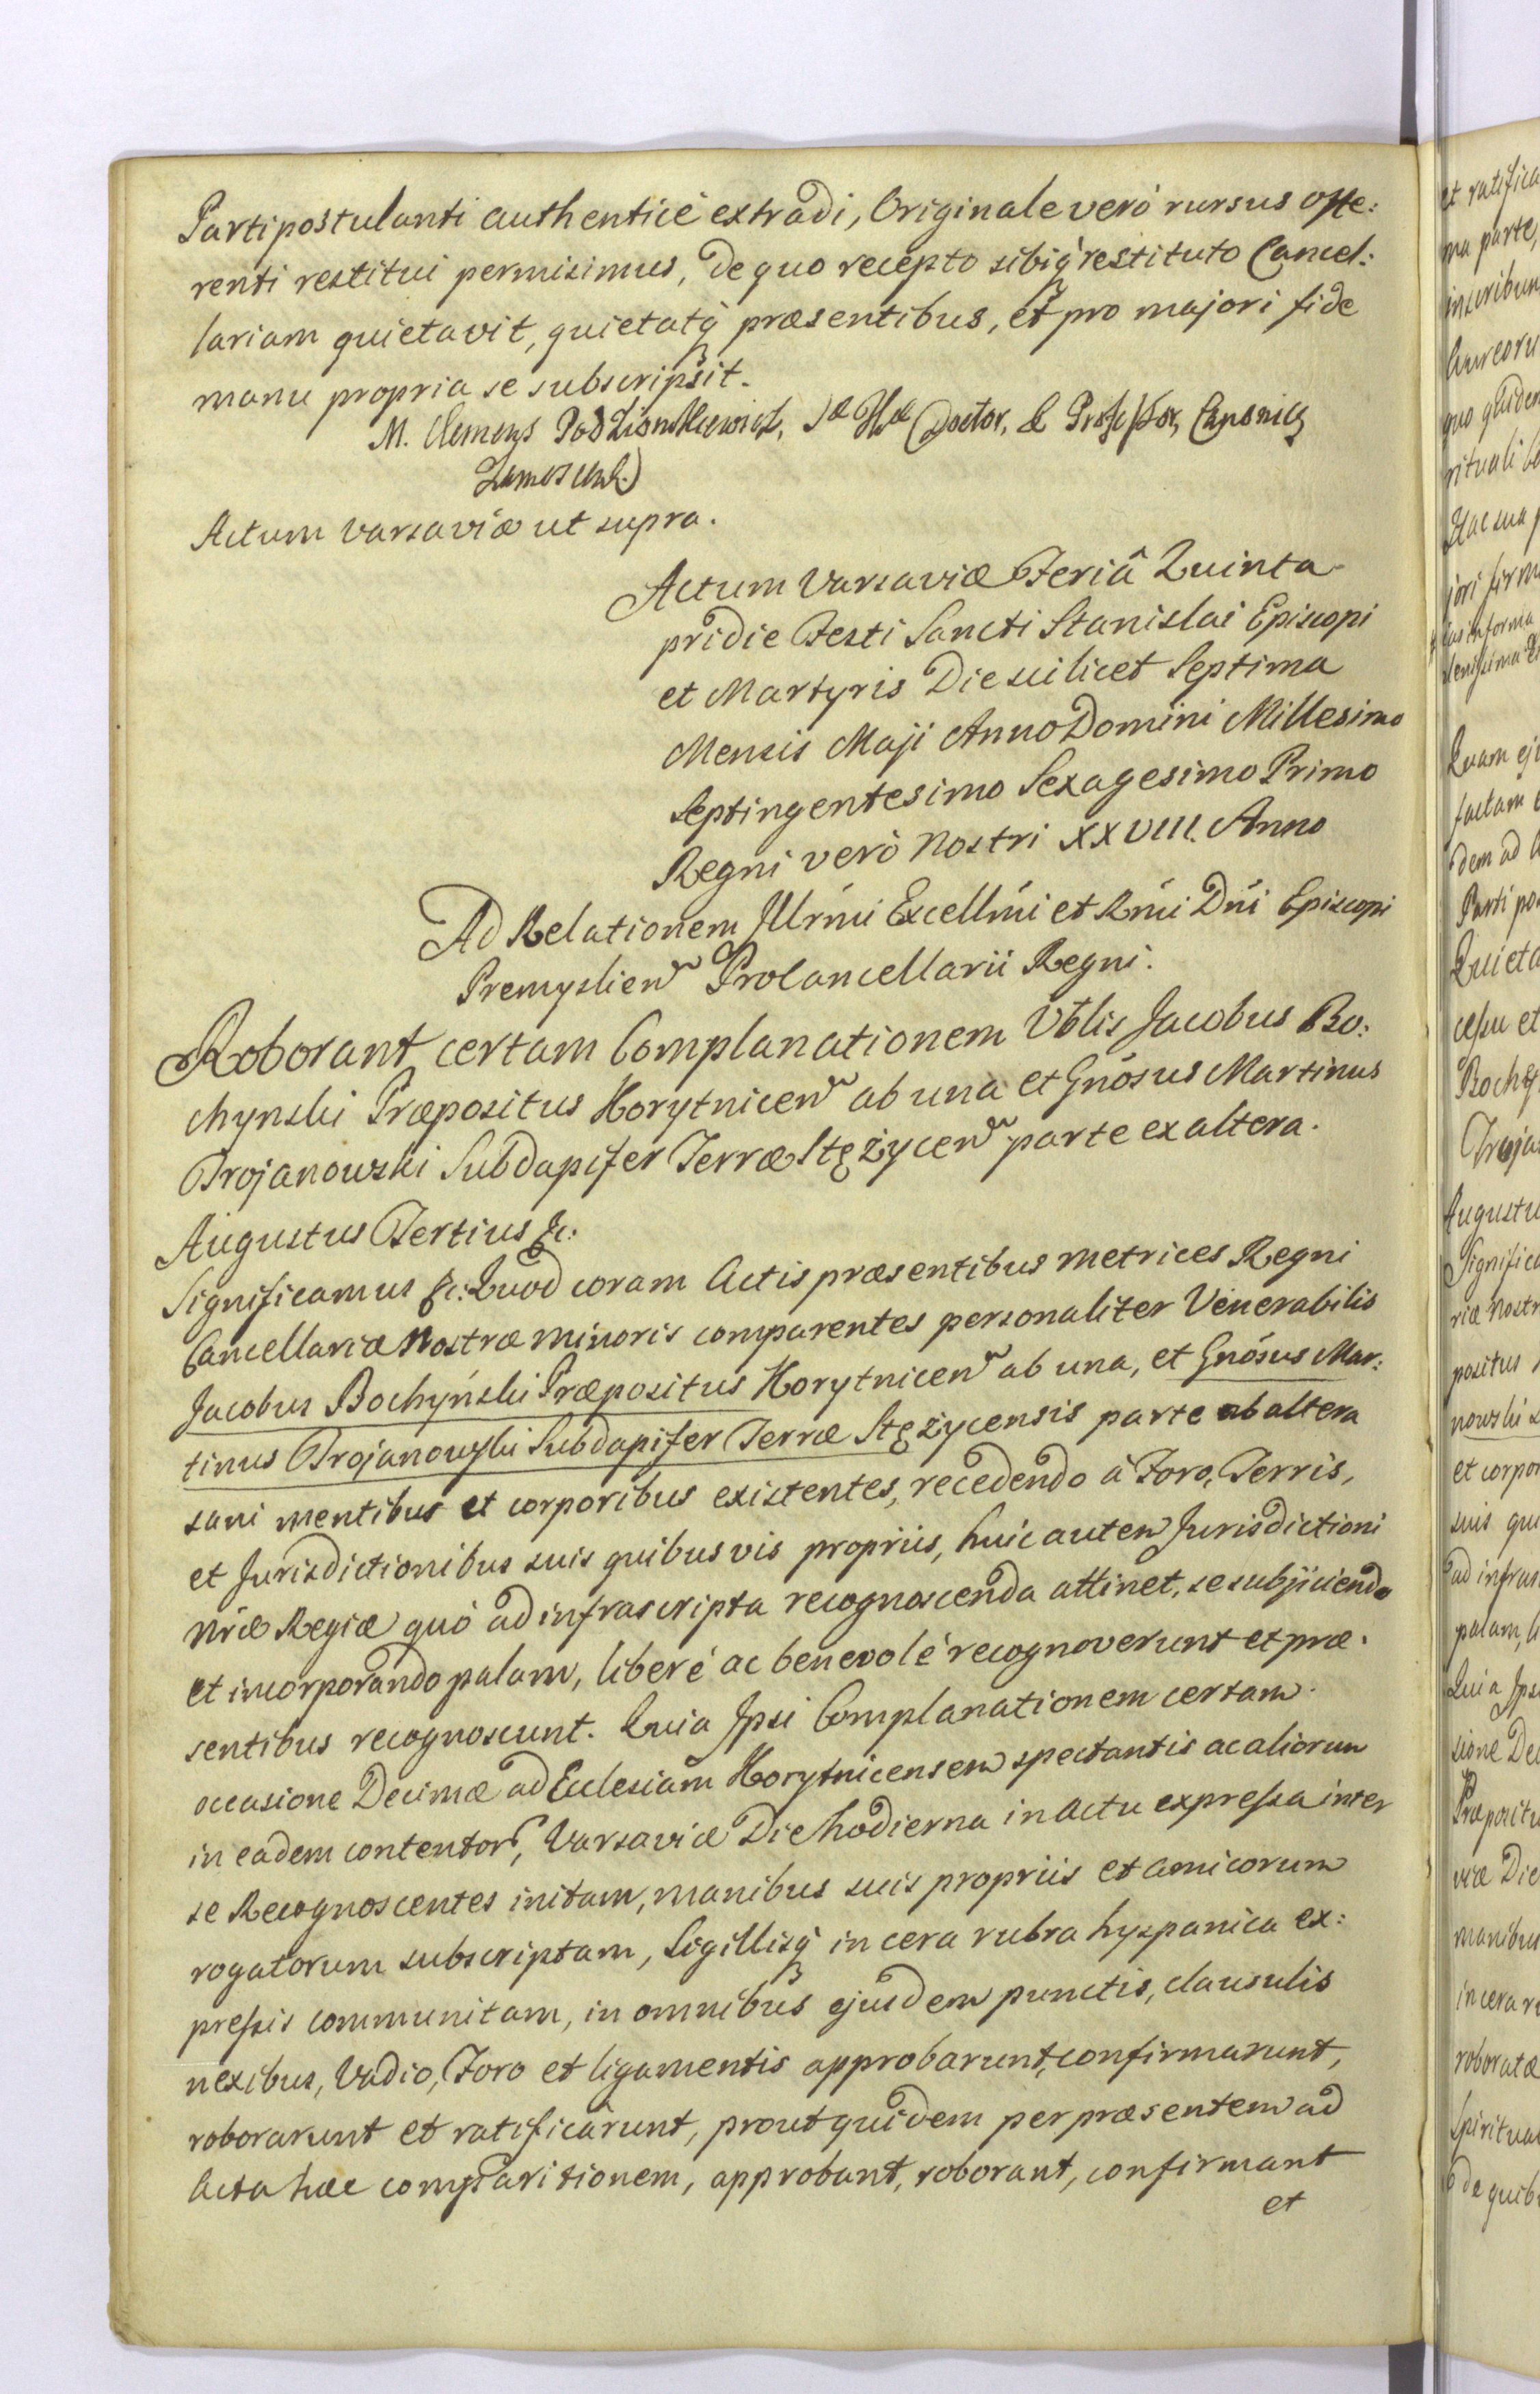 Parti postulanti authenticè extradi, Originale verò rursus offe:
renti restitui permisimus, de quo recepto sibiq̀ restituto Cancel:
lariam quietavit, quietatq̀ præsentibus, et pro majori fide
manu propria se subscripsit.
M. Clemens Doctor, & Professor, Canonicq
Zamoscen.)
Actum Varsaviæ ut supra.
Actum Varsaviæ Feriâ Quinta
pridie Festi Sancti Stanislai Episcopi
et Martyris Die scilicet Septima
Mensis Maji Anno Domini Millesimo
Septingentesimo Sexagesimo Primo
Regni verò Nostri XXVIII. Anno
Ad Relationem Illrm̃i Excellm̃i et Rm̃i Dñi Episcopi
Premyslien̄ ProCancellarii Regni.
Roborant certam Complanationem Vb̃lis Jacobus Bo:
chynski Præpositus Korytnicen̄ ab una et Gnõsus Martinus
Trojanowski Subdapifer Terræ Stężycen̄ parte ex altera.
Augustus Tertius &c:
Significamus &c: Quod coram Actis præsentibus metrices Regni
Cancellariæ Nostræ minoris comparentes personaliter Venerabilis
Jacobus Bochyński Præpositus Korytnicen̄ ab una, et Gnõsus Mar:
tinus Trojanowski Subdapifer Terræ Stężycensis parte ab altera
sani mentibus et corporibus existentes, recedendo à Foro, Terris,
et Jurisdictionibus suis quibusvis propriis, huic autem Jurisdictioni
Nræ Regiæ quò ad infrascripta recognoscenda attinet, se subjiciendo
et incorporando palam, liberè ac benevolè recognoverunt et præ:
sentibus recognoscunt. Quia Ipsi Complanationem certam
occasione Decimæ ad Ecclesiam Korytnicensem spectantis ac aliorum
in eadem contentorȝ, Varsaviæ Die hodierna in actu expressa inter
se Recognoscentes initam, manibus suis propriis et amicorum
rogatorum subscriptam, Sigillisq̀ in cera rubra hyspanica ex:
pressis communitam, in omnibus ejusdem punctis, clausulis
nexibus, Vadio, Foro et ligamentis approbarunt, confirmarunt,
roborarunt et ratificarunt, prout quidem per præsentem ad
Acta hæc comparitionem, approbant, roborant, confirmant
et